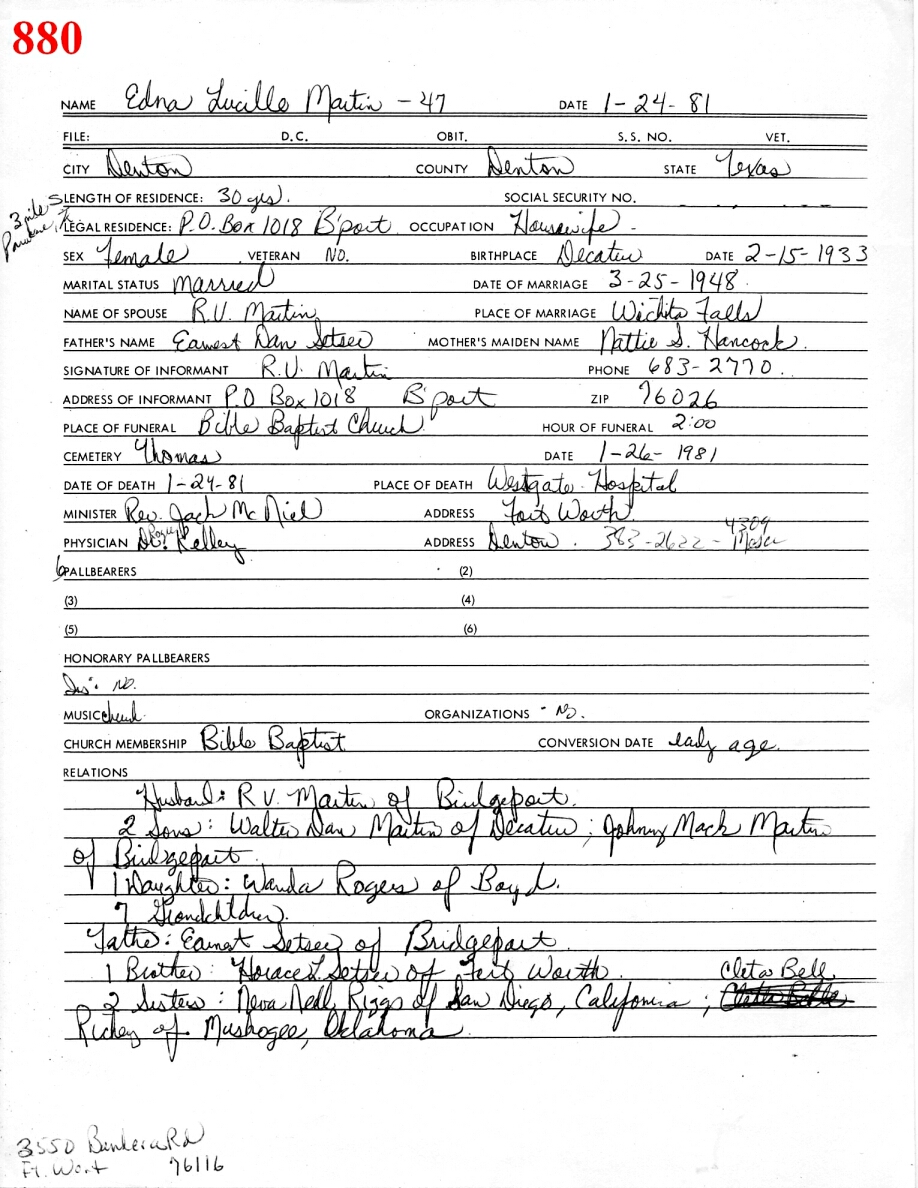 880
NAME Edna Lucille Martin - 47 DATE 1-24-81
FILE: D.C. OBIT. S.S. NO. VET.
CITY Denton COUNTY Denton STATE Texas
3 mile S
LENGTH OF RESIDENCE: 30 yrs. SOCIAL SECURITY NO.
LEGAL RESIDENCE: P.O. Box 1018 B'port OCCUPATION Housewife -
SEX Female VETERAN NO. BIRTHPLACE Decatur DATE 2-15-1933
MARITAL STATUS Married DATE OF MARRIAGE 3-25-1948
NAME OF SPOUSE R.V. Martin PLACE OF MARRIAGE Wichita Falls
FATHER'S NAME Earnest Dan Setser MOTHER'S MAIDEN NAME Nattie S. Hancock.
SIGNATURE OF INFORMANT R.V. Martin PHONE 683-2770.
ADDRESS OF INFORMANT P.O Box 1018 B'port ZIP 76026
PLACE OF FUNERAL Bible Baptist Church HOUR OF FUNERAL 2:00
CEMETERY Thomas DATE 1-26-1981
DATE OF DEATH 1-24-81 PLACE OF DEATH Westgate Hospital
MINISTER Rev. Jack McNiel ADDRESS Fort Worth
PHYSICIAN Dr. Kelley ADDRESS Denton. 383-2622 - 4309
6 PALLBEARERS (2)
(3) (4)
(5) (6)
HONORARY PALLBEARERS
Ins: No.
MUSIC church ORGANIZATIONS - No.
CHURCH MEMBERSHIP Bible Baptist CONVERSION DATE early age.
RELATIONS
Husband: R V. Martin of Bridgeport.
2 Sons: Walter Dan Martin of Decatur; Johnny Mack Martin
of Bridgeport.
1 Daughter: Wanda Rogers of Boyd.
7 Grandchildren.
Father: Earnest Setser of Bridgeport
1 Brother: Horace L. Setser of Fort Worth. Cleta Bell
2 Sisters: Neva Nell Riggs of San Diego, California;
Richey of Muskogee, Oklahoma.
3550 Rd
Ft. Wort 76116